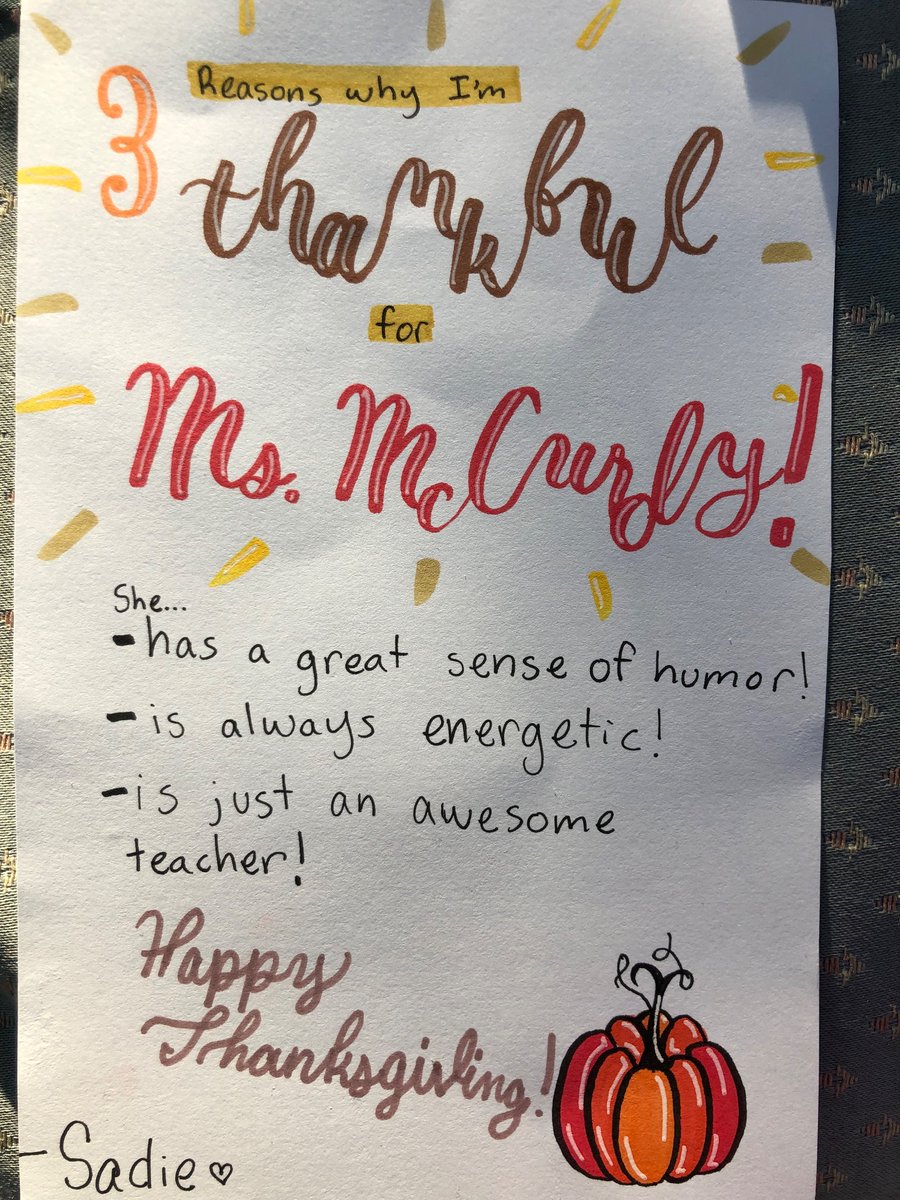 3 Reasons why I'm
thankful
for
Ms. McCurly!
She...
-has a great sense of humor!
-is always energetic!
-is just an awesome
teacher!
Happy
Thanksgiving!
-Sadie♡